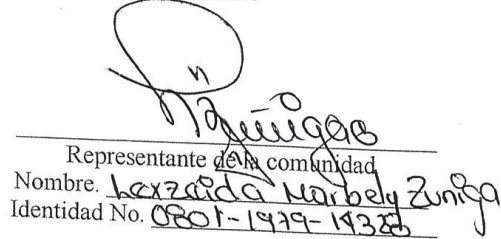 Representante de la comunidad
Nombre. Lexzaida Marbely Zuniga
Identidad No. 0801-1979-14328